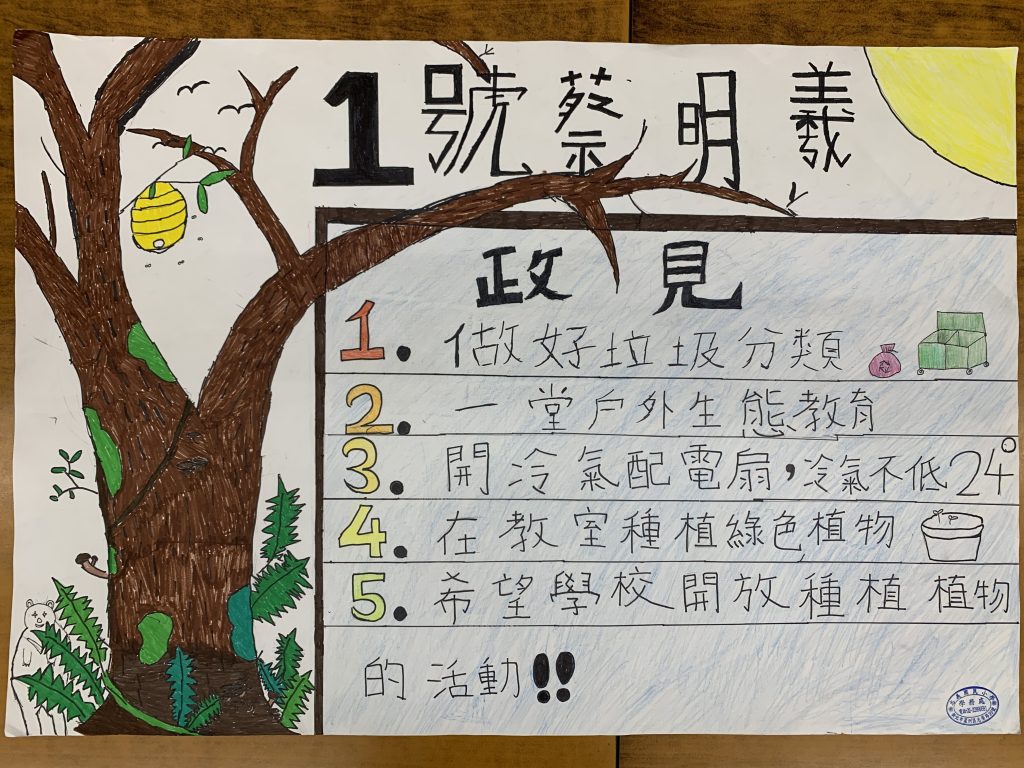 1號蔡明羲
政見
1. 做好垃圾分類
2. 一堂戶外生態教育
3. 開冷氣配電扇，冷氣不低24°
4. 在教室種植綠色植物
5. 希望學校開放種植植物
的活動!!
學務處